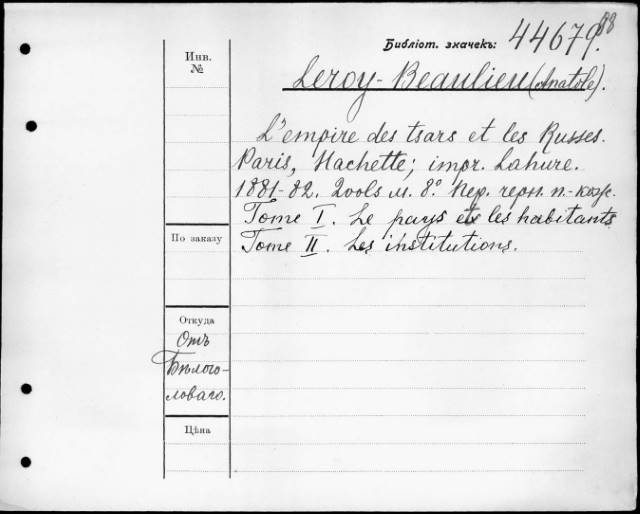 Библіот. значекъ: 44679.88
Инв. №
Leroy-Beaulieu (Anatole).
L'empire des tsars et les Russes.
Paris, Hachette; impr. Lahure.
1881-82. 2vols м. 8° Пер. черн. п.-кож.
Tome I. Le pays et les habitants
По заказу
Tome II. Les institutions.
Откуда
Отъ
Бѣлого-
ловаго.
Цѣна